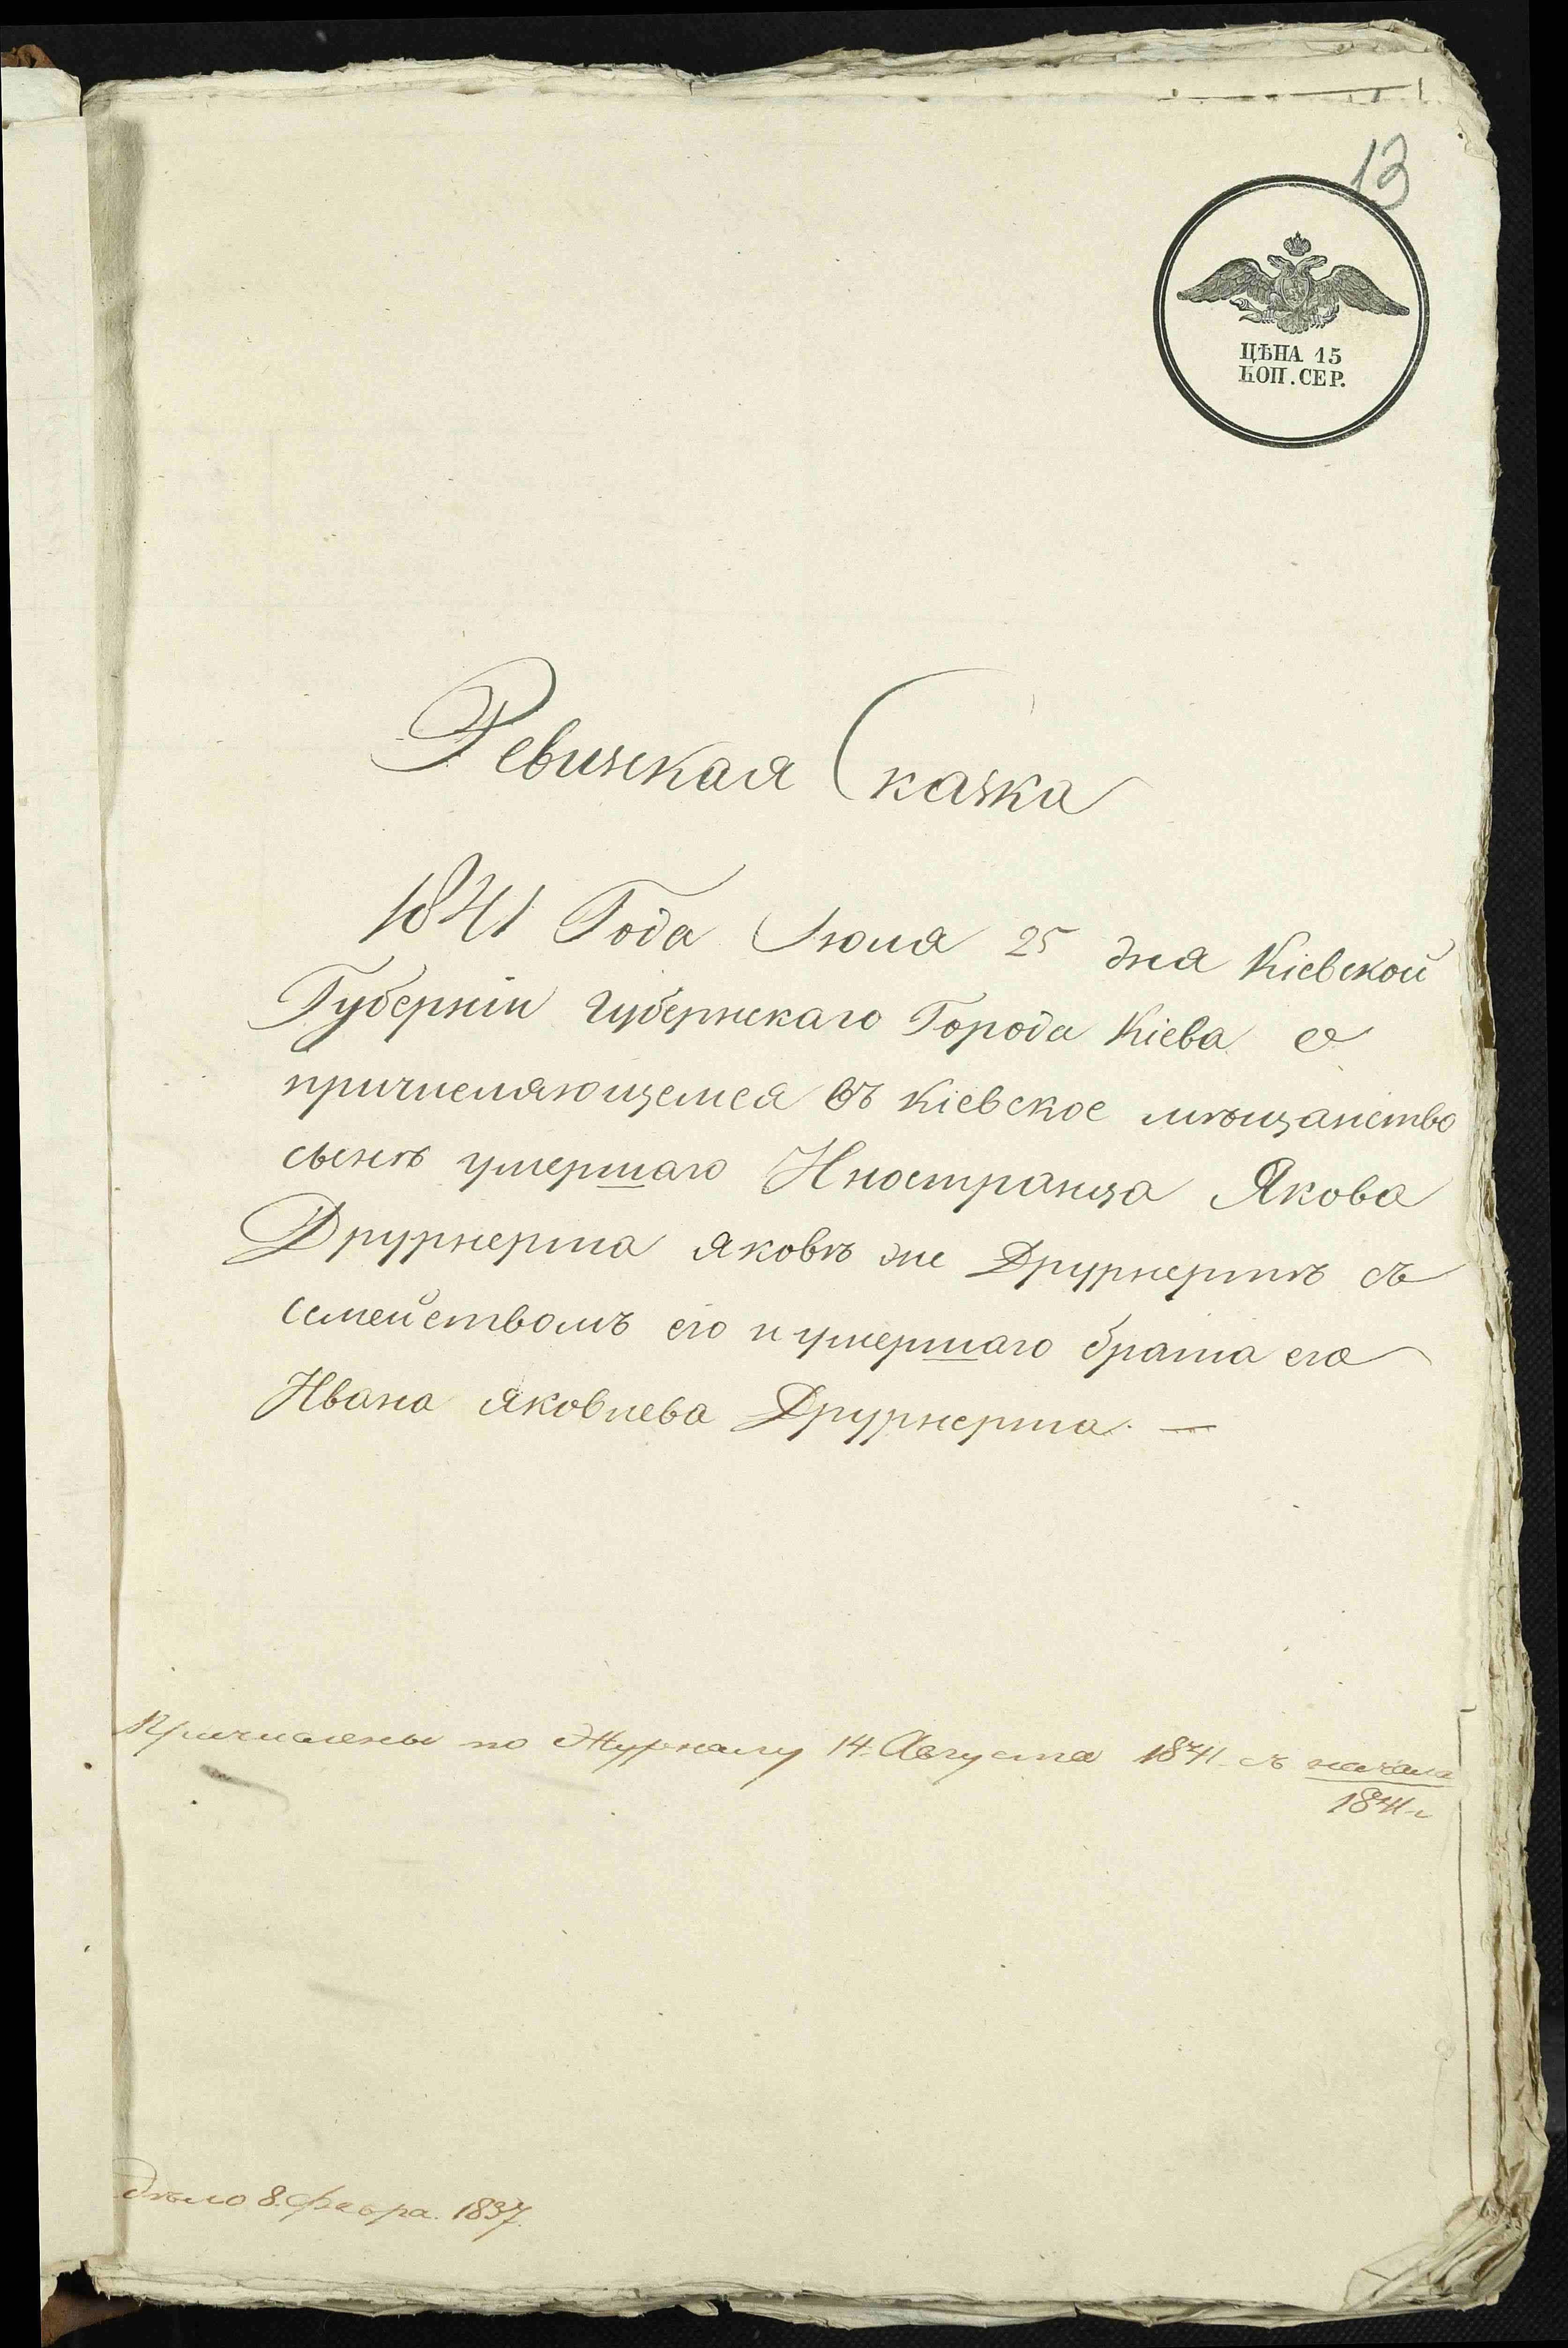 13
ЦѢНА 15
КОП. СЕР.
Ревизская Сказка
1841 Года Июля 25 дня Кіевской
Губерніи губернскаго Города Кіева о
причисляющемся въ Кіевское мѣщанство
сынѣ умершаго Иностранца Якова
Друрнерта Яковѣ же Друрнертѣ съ
семействомъ его и умершаго брата его
Ивана Яковлева Друрнерта. —
Причислены по Журналу 14. Августа 1841. съ начала
1841 г.
дѣло 8. Февра. 1837.